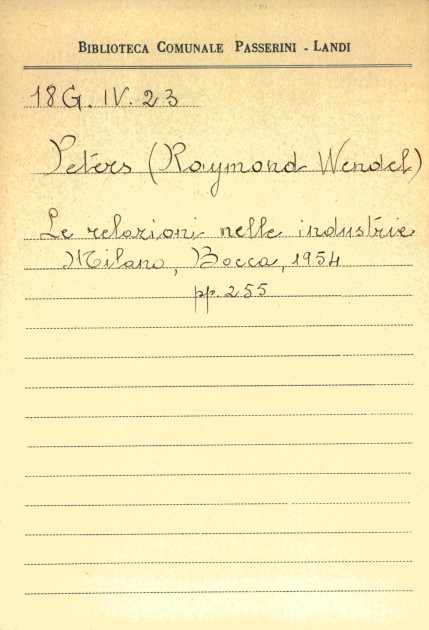 BIBLIOTECA COMUNALE PASSERINI - LANDI
18 G. IV. 23
Peters (Raymond Wendel)
Le relazioni nelle industrie
Milano, Bocca, 1954
pp. 255